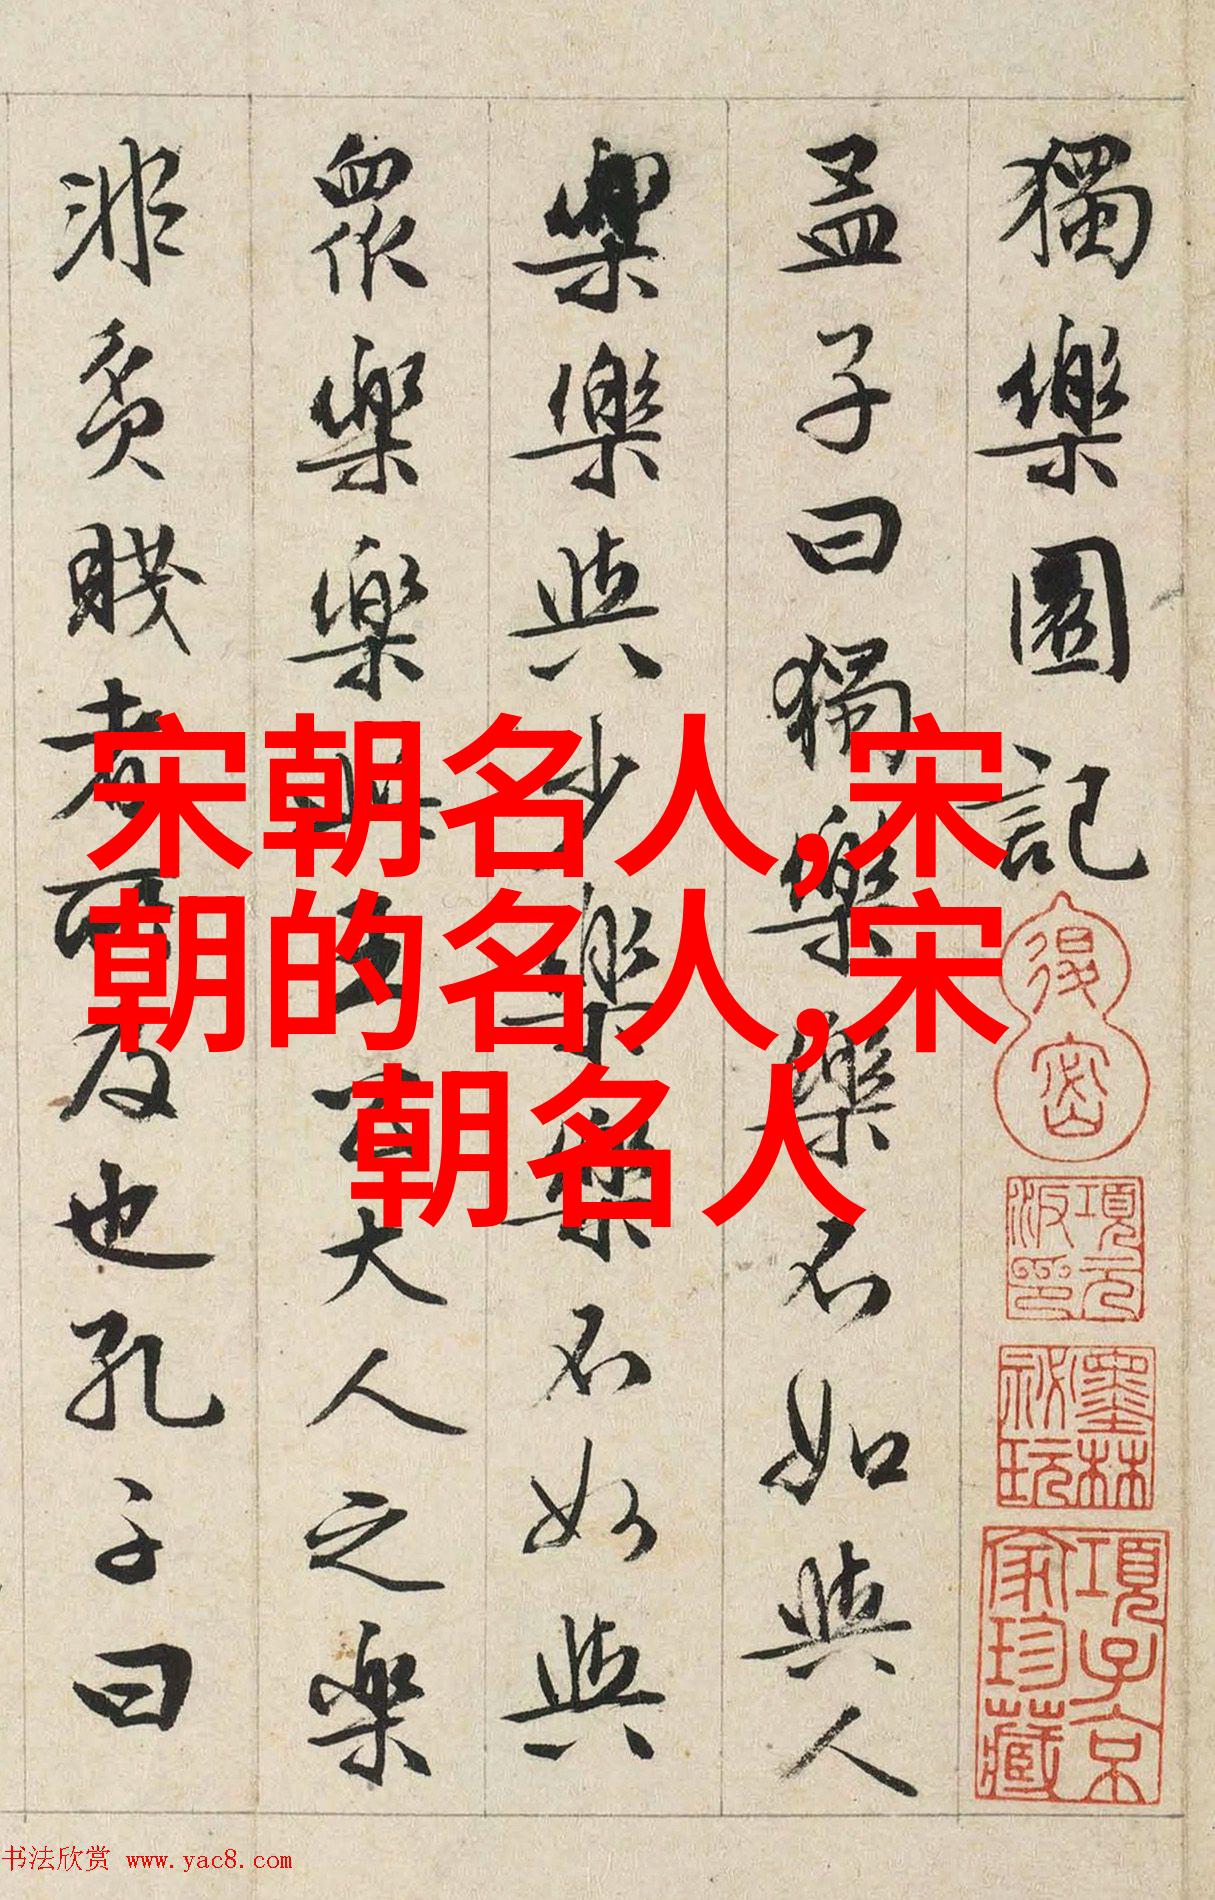 獨樂園記
孟子曰獨樂樂不如與人
樂樂與少樂樂不如與
衆樂樂與王公大人之樂
非貧賤者所及也孔子曰
宋朝名人,宋
朝的名人,宋
朝名人
復密
項元汴印
墨林祕玩
項子京家珍藏
书法欣赏 www.yac8.com